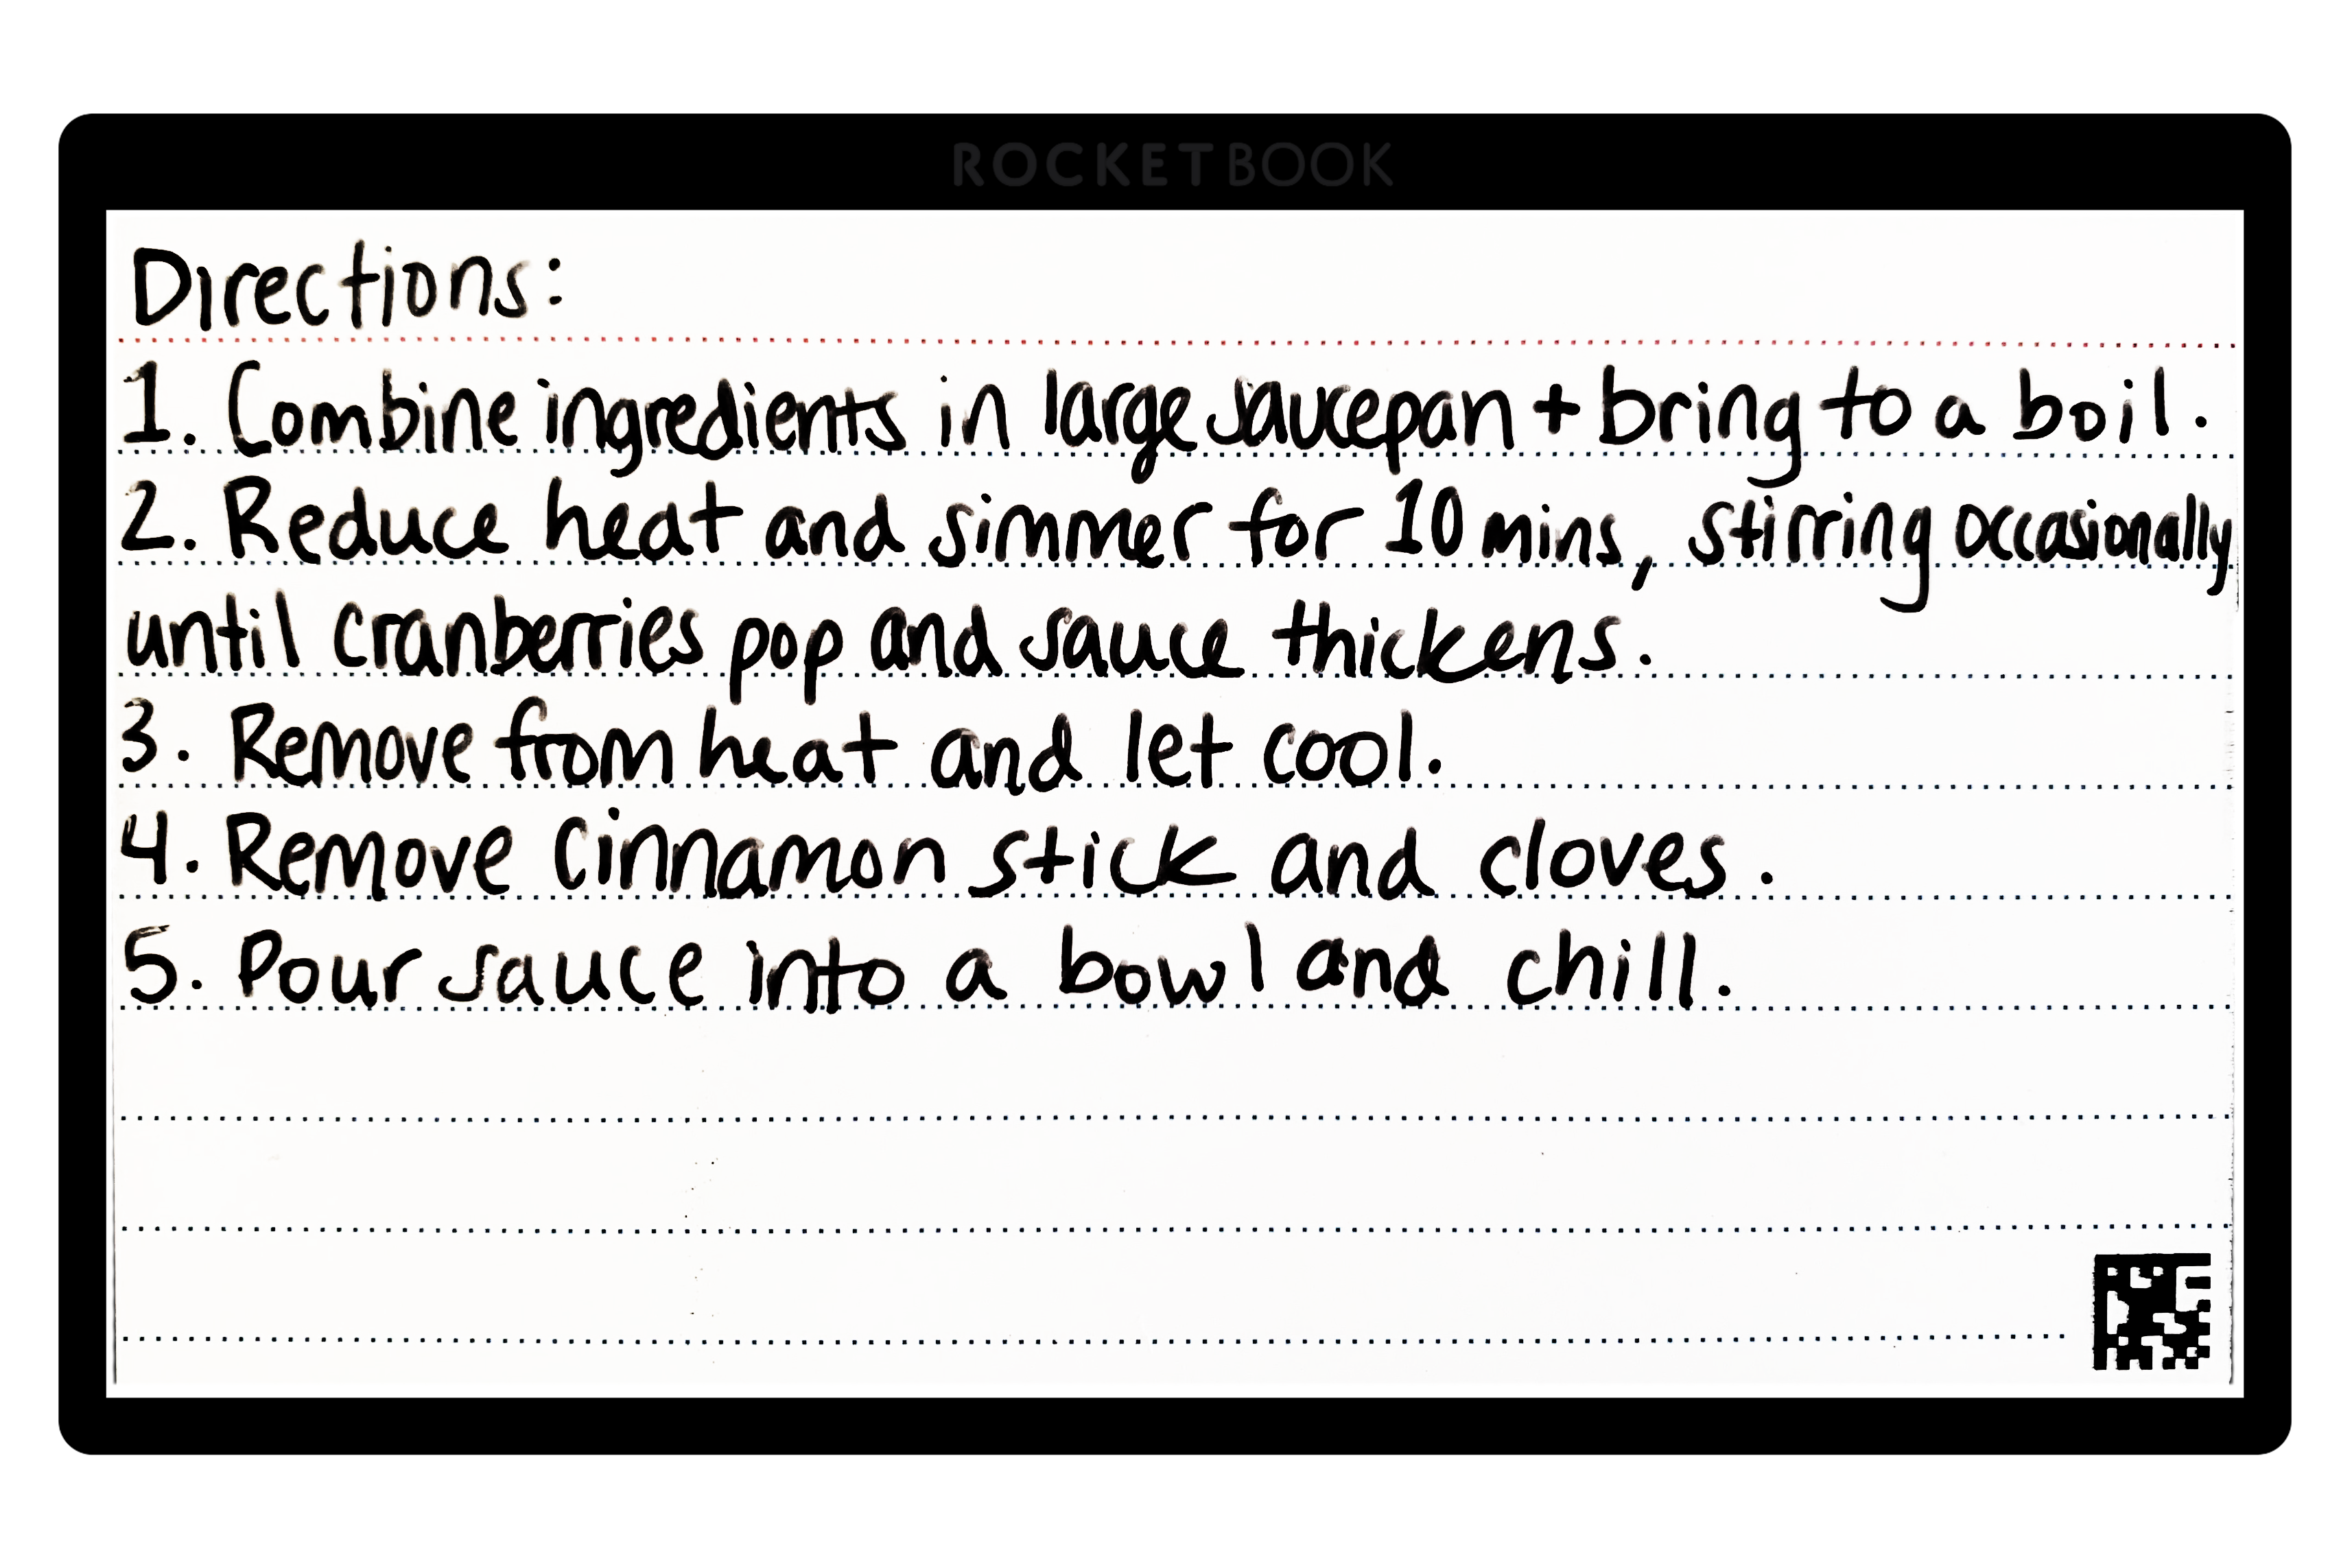 ROCKETBOOK
Directions:
1. Combine ingredients in large saucepan + bring to a boil.
2. Reduce heat and simmer for 10 mins, stirring occasionally
until cranberries pop and sauce thickens.
3. Remove from heat and let cool.
4. Remove cinnamon stick and cloves.
5. Pour sauce into a bowl and chill.